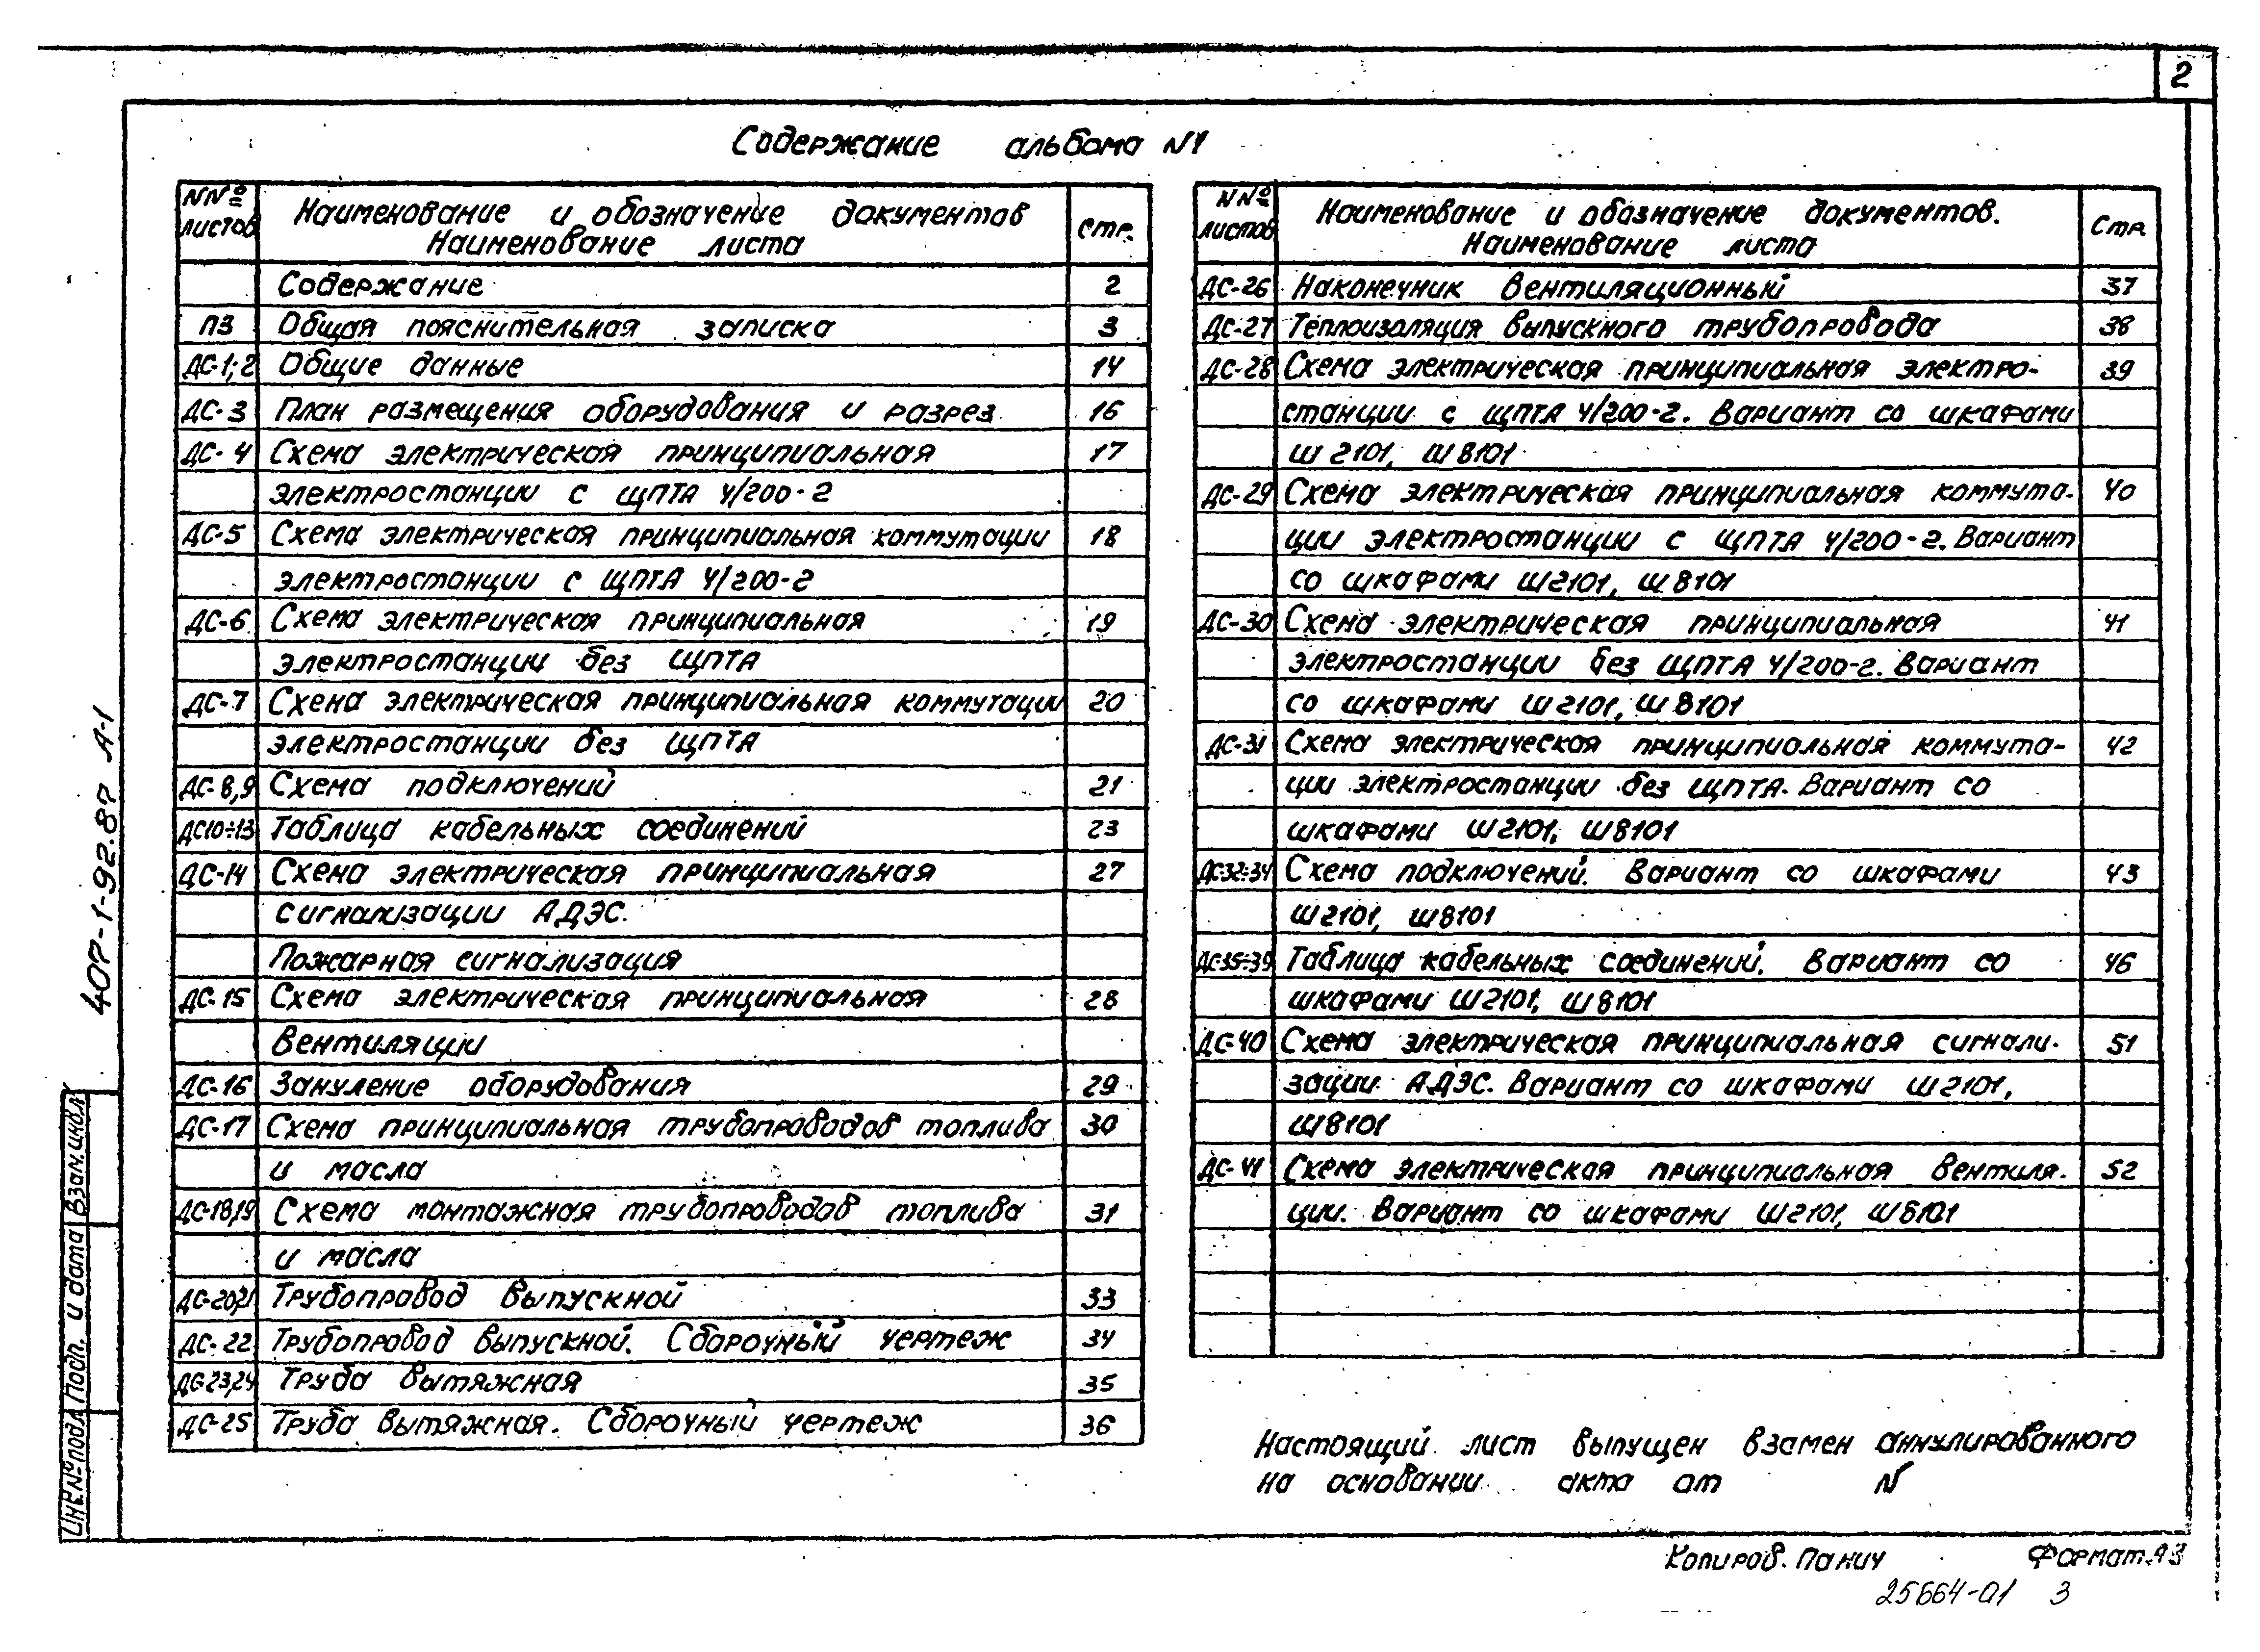 2
Содержание альбома N1
NNº листов
Наименование и обозначение документов
Наименование листа
стр.
Содержание 2
ПЗ Общая пояснительная записка 3
ДС-1;2 Общие данные 14
ДС-3 План размещения оборудования и разрез 16
ДС-4 Схема электрическая принципиальная 17
электростанции с ЩПТА 4/200-2
ДС-5 Схема электрическая принципиальная коммутации 18
электростанции с ЩПТА 4/200-2
ДС-6 Схема электрическая принципиальная 19
электростанции без ЩПТА
ДС-7 Схема электрическая принципиальная коммутации 20
электростанции без ЩПТА
ДС-8,9 Схема подключений 21
ДС10÷13 Таблица кабельных соединений 23
ДС-14 Схема электрическая принципиальная 27
сигнализации АДЭС.
Пожарная сигнализация
ДС-15 Схема электрическая принципиальная 28
вентиляции
ДС-16 Зануление оборудования 29
ДС-17 Схема принципиальная трубопроводов топлива 30
и масла
ДС-18,19 Схема монтажная трубопроводов топлива 31
и масла
ДС-20,21 Трубопровод выпускной 33
ДС-22 Трубопровод выпускной. Сборочный чертеж 34
ДС-23,24 Труба вытяжная 35
ДС-25 Труба вытяжная. Сборочный чертеж 36
NNº листов
Наименование и обозначение документов.
Наименование листа
Стр.
ДС-26 Наконечник вентиляционный 37
ДС-27 Теплоизоляция выпускного трубопровода 38
ДС-28 Схема электрическая принципиальная электро- 39
станции с ЩПТА 4/200-2. Вариант со шкафами
Ш2101, Ш8101
ДС-29 Схема электрическая принципиальная коммута- 40
ции электростанции с ЩПТА 4/200-2. Вариант
со шкафами Ш2101, Ш8101
ДС-30 Схема электрическая принципиальная 41
электростанции без ЩПТА 4/200-2. Вариант
со шкафами Ш2101, Ш8101
ДС-31 Схема электрическая принципиальная коммута- 42
ции электростанции без ЩПТА. Вариант со
шкафами Ш2101, Ш8101
ДС-32÷34 Схема подключений. Вариант со шкафами 43
Ш2101, Ш8101
ДС-35÷39 Таблица кабельных соединений. Вариант со 46
шкафами Ш2101, Ш8101
ДС-40 Схема электрическая принципиальная сигнали- 51
зации АДЭС. Вариант со шкафами Ш2101,
Ш8101
ДС-41 Схема электрическая принципиальная вентиля- 52
ции. Вариант со шкафами Ш2101, Ш8101
Настоящий лист выпущен взамен аннулированного
на основании акта от N
407-1-92.87 А-1
Инв.Nºподл Подп. и дата Взам.инв.N
Копиров. Панич Формат А3
25664-01 3